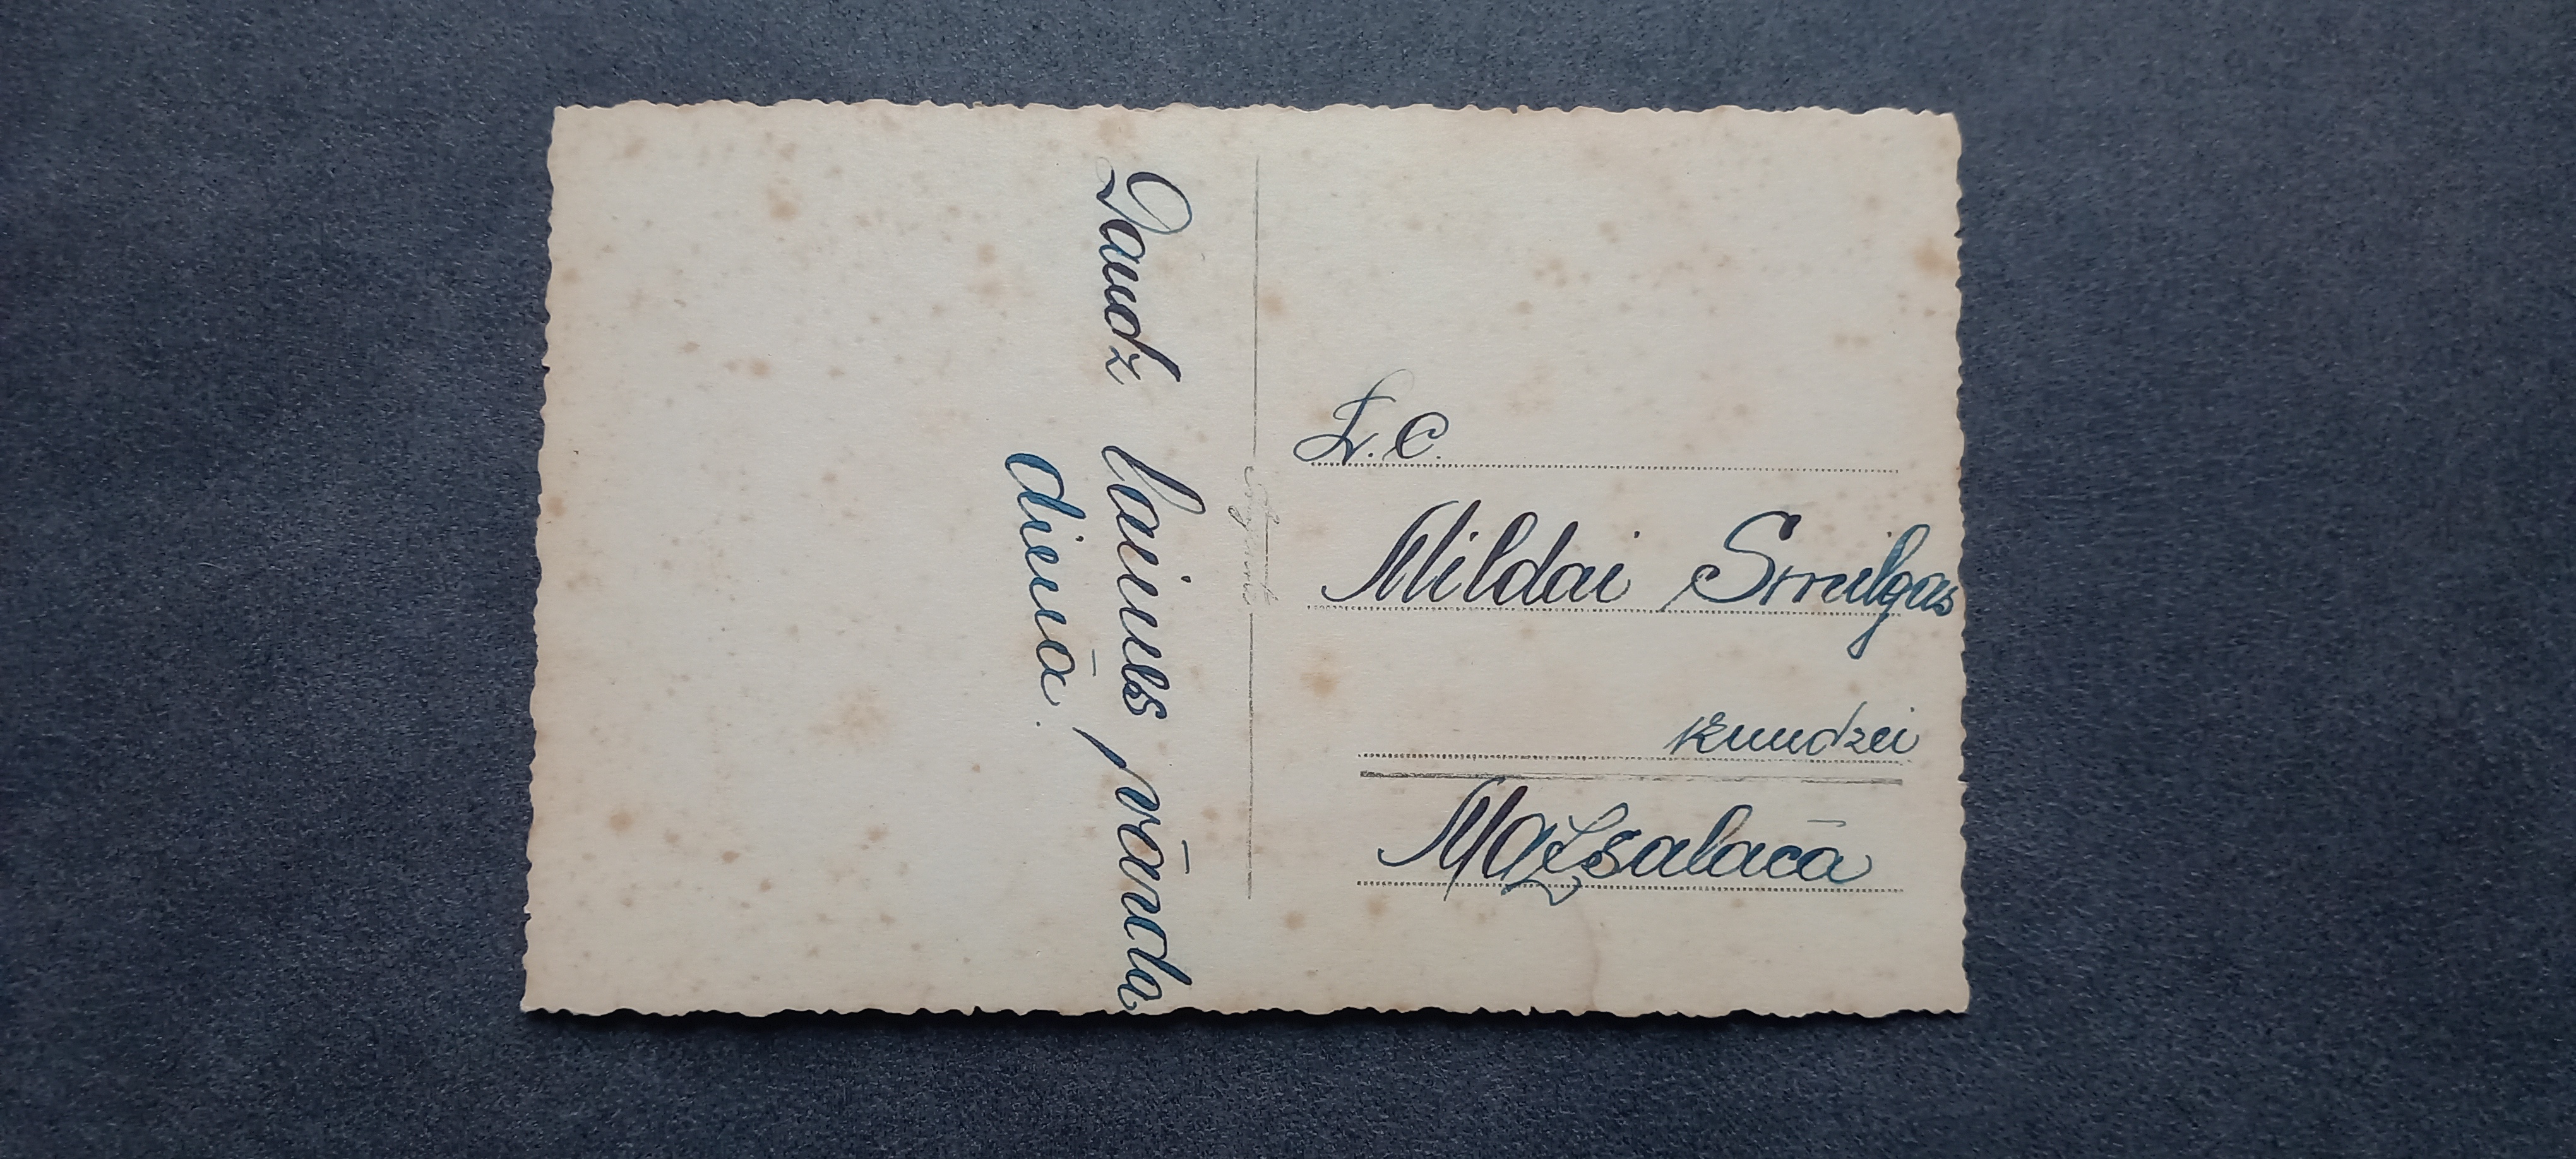 Daudz laimes vārda
dienā.
L. C.
Mildai Smilgas
kundzei
Mazsalacā